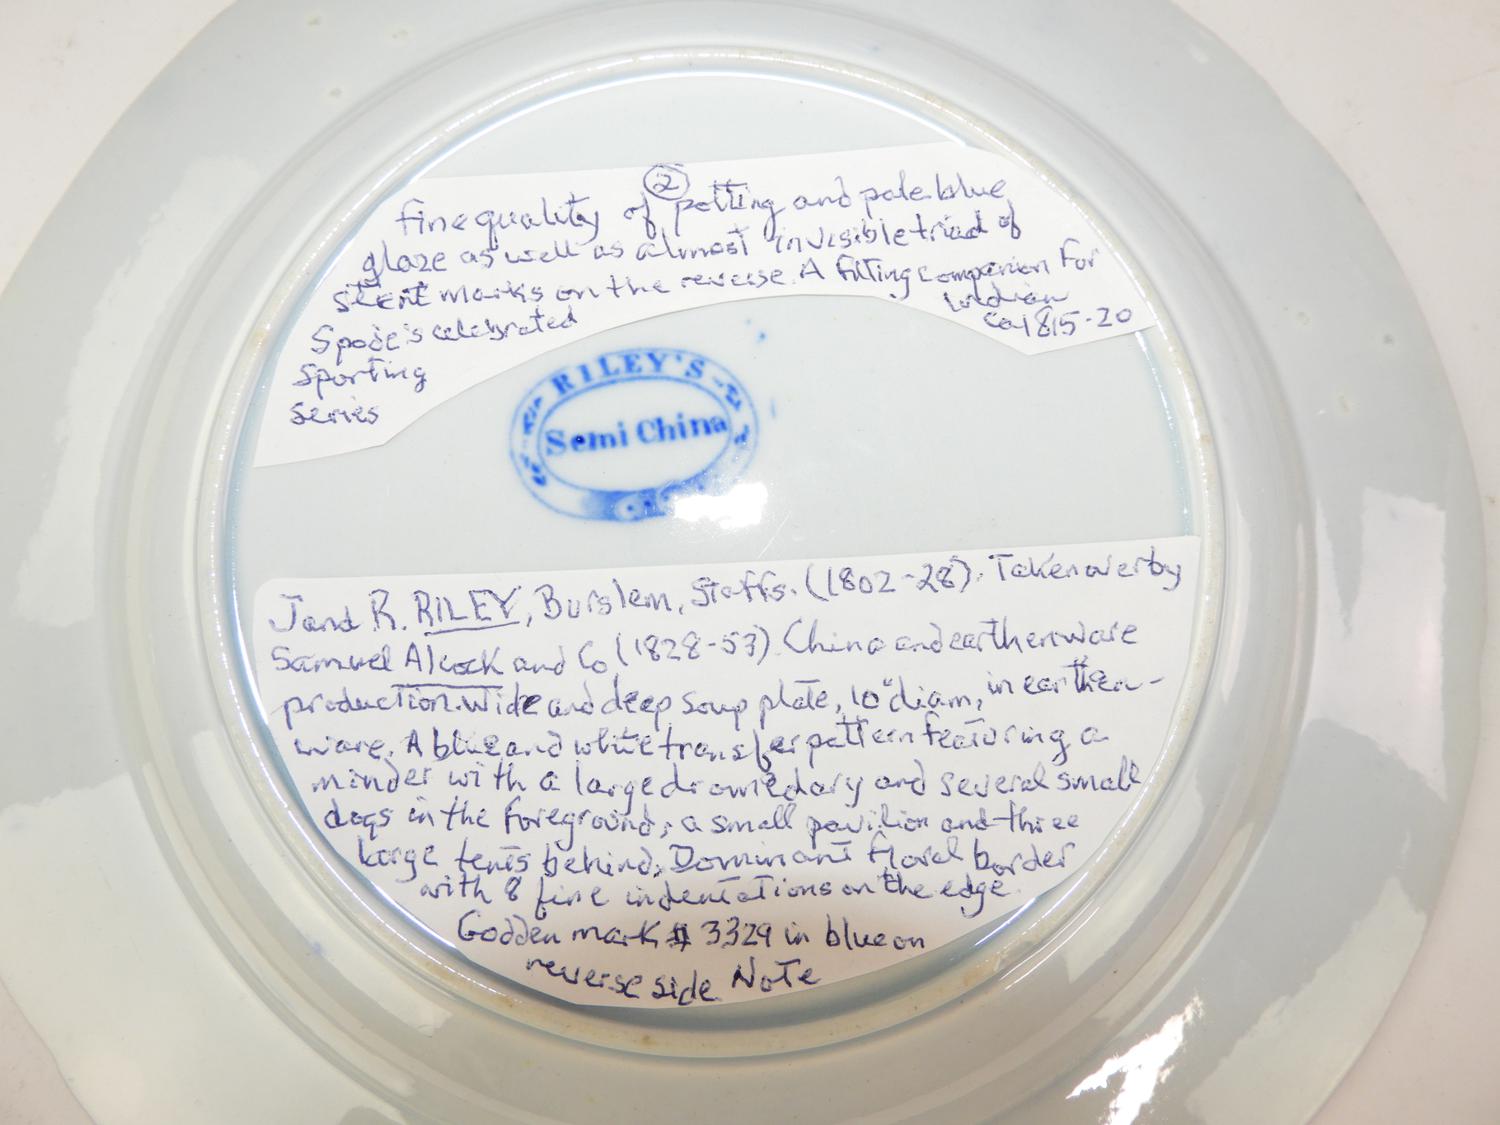 ②
Fine quality of potting and pale blue
glaze as well as almost invisible triad of
stent marks on the reverse. A fitting companion for
Spode's celebrated Indian
Sporting ca 1815-20
series
RILEY'S
Semi China
J and R. RILEY, Burslem, Staffs. (1802-28). Taken over by
Samuel Alcock and Co (1828-53) China and earthenware
production. Wide and deep soup plate, 10" diam, in earthen-
ware. A blue and white transfer pattern featuring a
minder with a large dromedary and several small
dogs in the foreground, a small pavilion and three
large tents behind. Dominant floral border
with 8 fine indentations on the edge.
Godden mark # 3329 in blue on
reverse side. Note